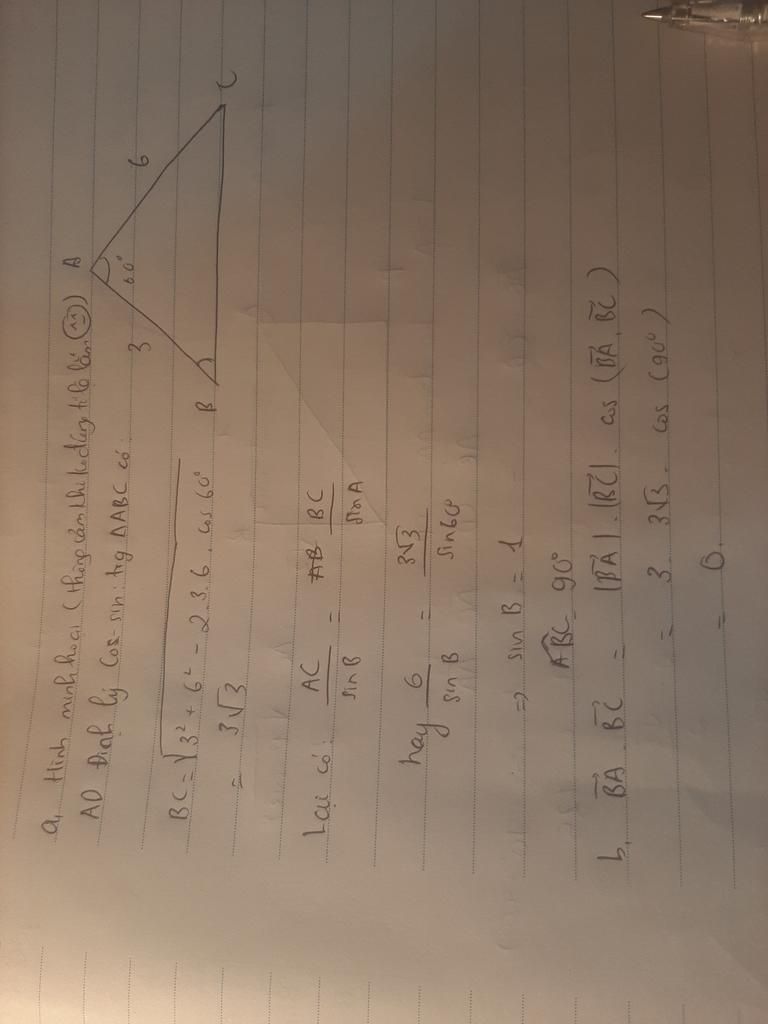 a, Hình minh hoạ (thông cảm khi ko đúng tỉ lệ lắm)
A
3
60°
6
B
C
AD Định lý Cos-sin: trg ΔABC có:
BC = √3² + 6² - 2.3.6. cos 60°
= 3√3
Lại có: AC/sin B = BC/sin A
hay 6/sin B = 3√3/sin 60°
=> sin B = 1
ABC = 90°
b, BA . BC = |BA| . |BC| . cos (BA, BC)
= 3. 3√3. cos (90°)
= 0.